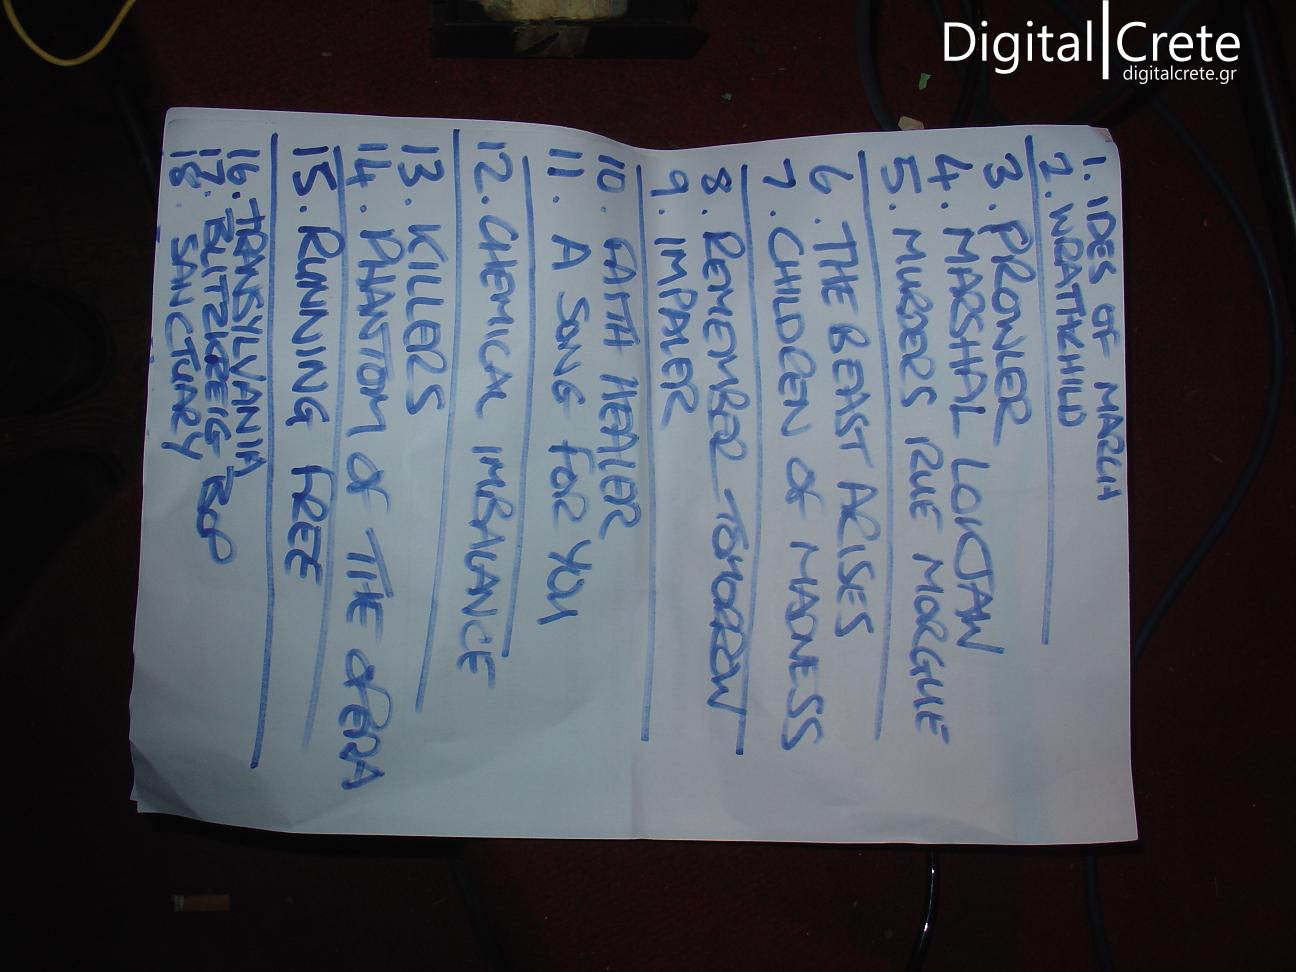 Digital|Crete
digitalcrete.gr
1. IDES OF MARCH
2. WRATHCHILD
3. PROWLER
4. MARSHAL LOKJAW
5. MURDERS RUE MORGUE
6. THE BEAST ARISES
7. CHILDREN OF MADNESS
8. REMEMBER TOMORROW
9. IMPALER
10. FAITH HEALER
11. A SONG FOR YOU
12. CHEMICAL IMBALANCE
13. KILLERS
14. PHANTOM OF THE OPERA
15. RUNNING FREE
16. TRANSYLVANIA
17. BLITZKREIG BOP
18 SANCTUARY